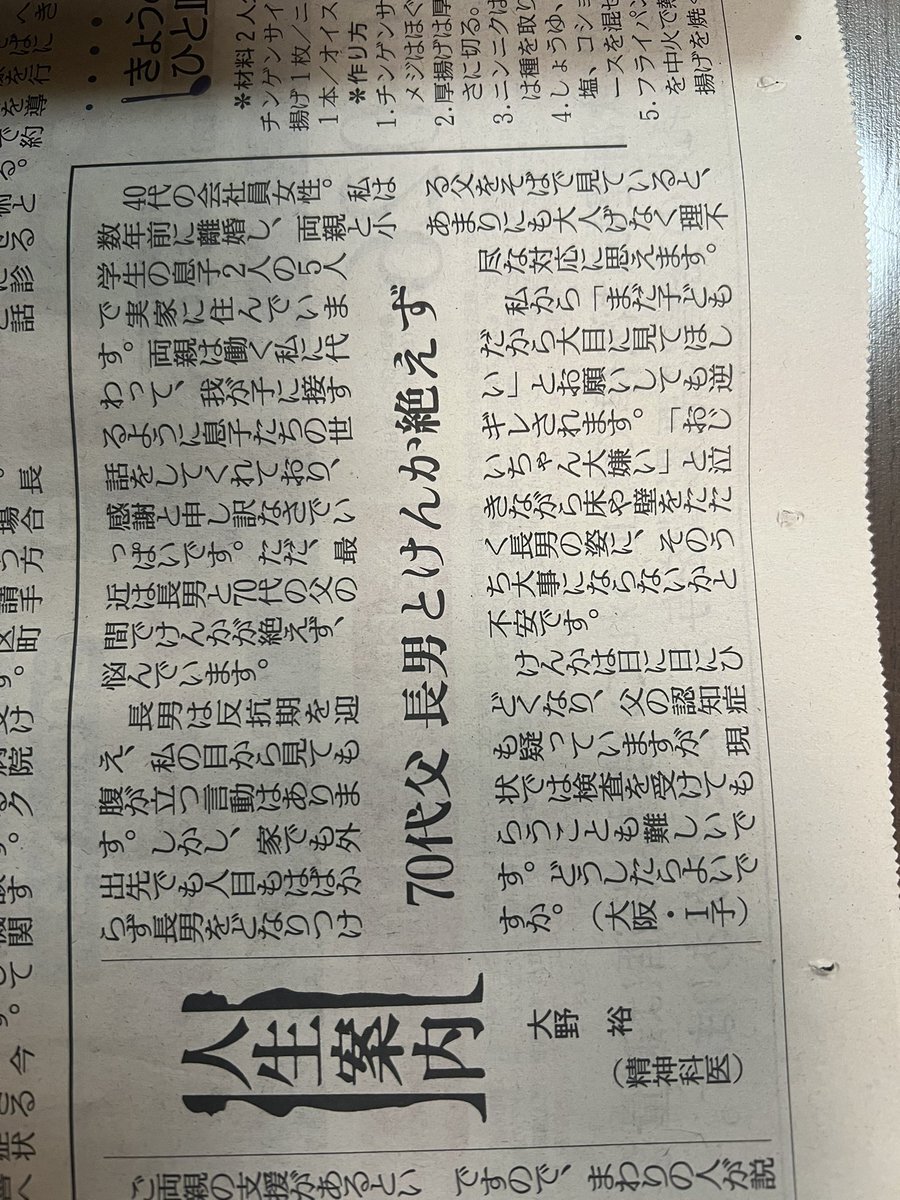 きょうの
ひと皿
＊材料2人
チンゲンサイ
揚げ1枚/ニ
1本/オイス
＊作り方
1.チンゲンサ
メジはほぐ
2.厚揚げは厚
さに切る。
3.ニンニクは
は種を取り
4.しょうゆ、
塩、コショ
ースを混ぜ
5.フライパン
を中火で熱
揚げを焼
70代父 長男とけんか絶えず
40代の会社員女性。私は
数年前に離婚し、両親と小
学生の息子2人の5人
で実家に住んでいま
す。両親は働く私に代
わって、我が子に接す
るように息子たちの世
話をしてくれており、
感謝と申し訳なさでい
っぱいです。ただ、最
近は長男と70代の父の
間でけんかが絶えず、
悩んでいます。
長男は反抗期を迎
え、私の目から見ても
腹が立つ言動はありま
す。しかし、家でも外
出先でも人目もはばか
らず長男をどなりつけ
る父をそばで見ていると、
あまりにも大人げなく理不
尽な対応に思えます。
私から「まだ子ども
だから大目に見てほし
い」とお願いしても逆
ギレされます。「おじ
いちゃん大嫌い」と泣
きながら床や壁をたた
く長男の姿に、そのう
ち大事にならないかと
不安です。
けんかは日に日にひ
どくなり、父の認知症
も疑っていますが、現
状では検査を受けても
らうことも難しいで
す。どうしたらよいで
すか。
（大阪・I子）
人生案内
大野 裕
（精神科医）
ご両親の支援があるとい
ですので、まわりの人が説